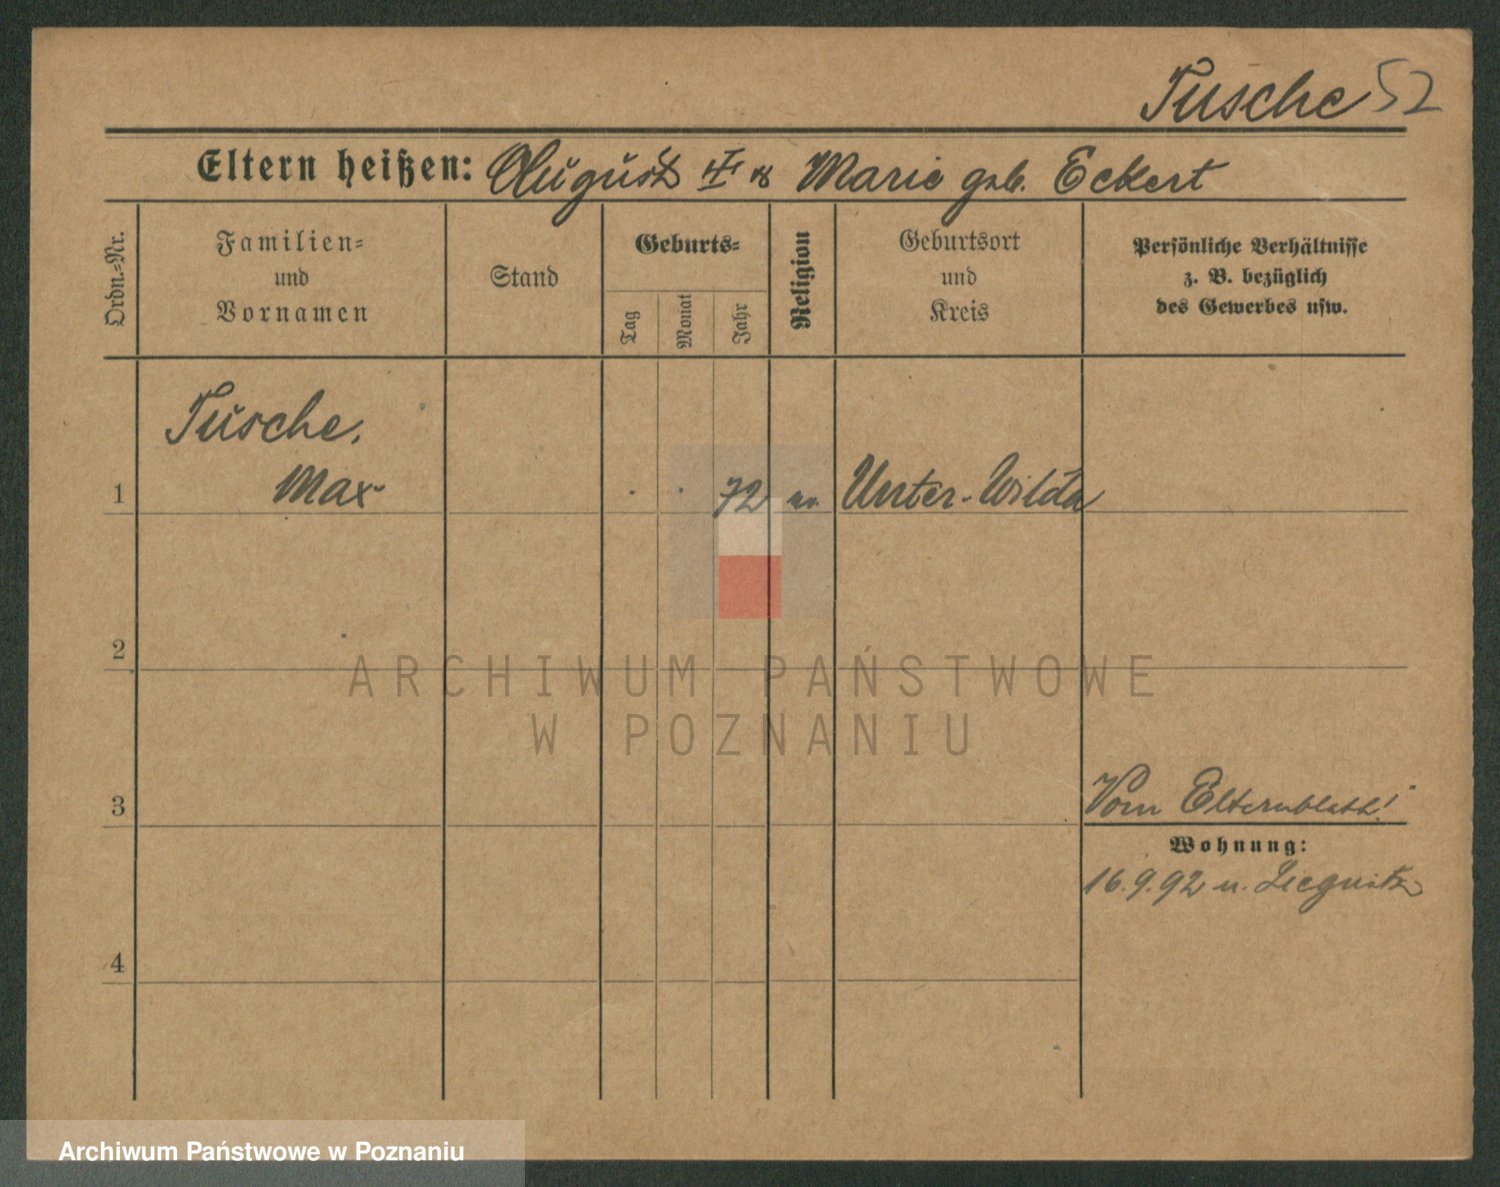 Tusche 52
Eltern heißen: August T. & Marie geb. Eckert
Ordn.=Nr.
Familien=
und
Vornamen
Stand
Geburts=
Tag
Monat
Jahr
Religion
Geburtsort
und
Kreis
Persönliche Verhältnisse
z. B. bezüglich
des Gewerbes usw.
Tusche,
1 Max 72 ev. Unter-Wilda
2
3 Vom Elternblatt!
Wohnung:
16.9.92 n. Liegnitz
4
ARCHIWUM PAŃSTWOWE
W POZNANIU
Archiwum Państwowe w Poznaniu